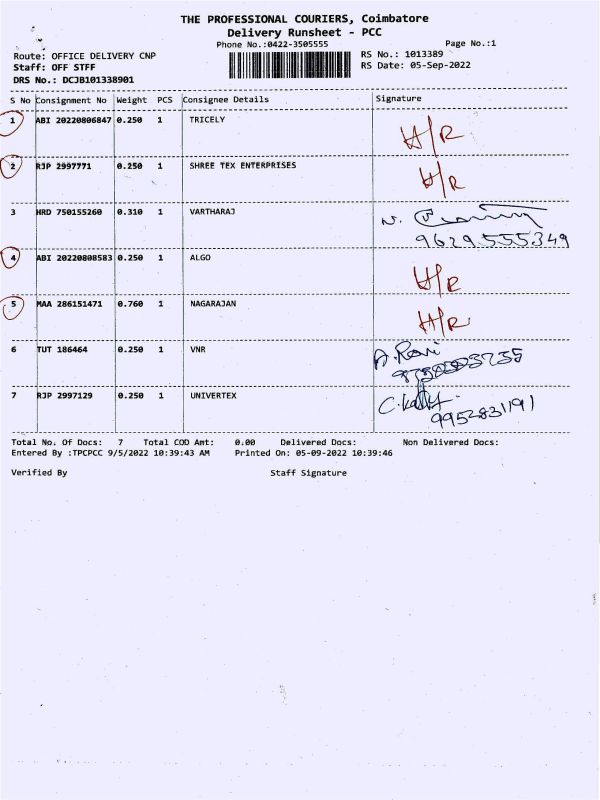 THE PROFESSIONAL COURIERS, Coimbatore
Delivery Runsheet - PCC
Phone No.:0422-3505555 Page No.:1
Route: OFFICE DELIVERY CNP RS No.: 1013389
Staff: OFF STFF RS Date: 05-Sep-2022
DRS No.: DCJB101338901
S No Consignment No Weight PCS Consignee Details Signature
1 ABI 20220806847 0.250 1 TRICELY H/R
2 RJP 2997771 0.250 1 SHREE TEX ENTERPRISES H/R
3 HRD 750155260 0.310 1 VARTHARAJ N.
9629555349
4 ABI 20220808583 0.250 1 ALGO H/R
5 MAA 286151471 0.760 1 NAGARAJAN H/R
6 TUT 186464 0.250 1 VNR A. Ravi
7 RJP 2997129 0.250 1 UNIVERTEX C.
9952831191
Total No. Of Docs: 7 Total COD Amt: 0.00 Delivered Docs: Non Delivered Docs:
Entered By :TPCPCC 9/5/2022 10:39:43 AM Printed On: 05-09-2022 10:39:46
Verified By Staff Signature